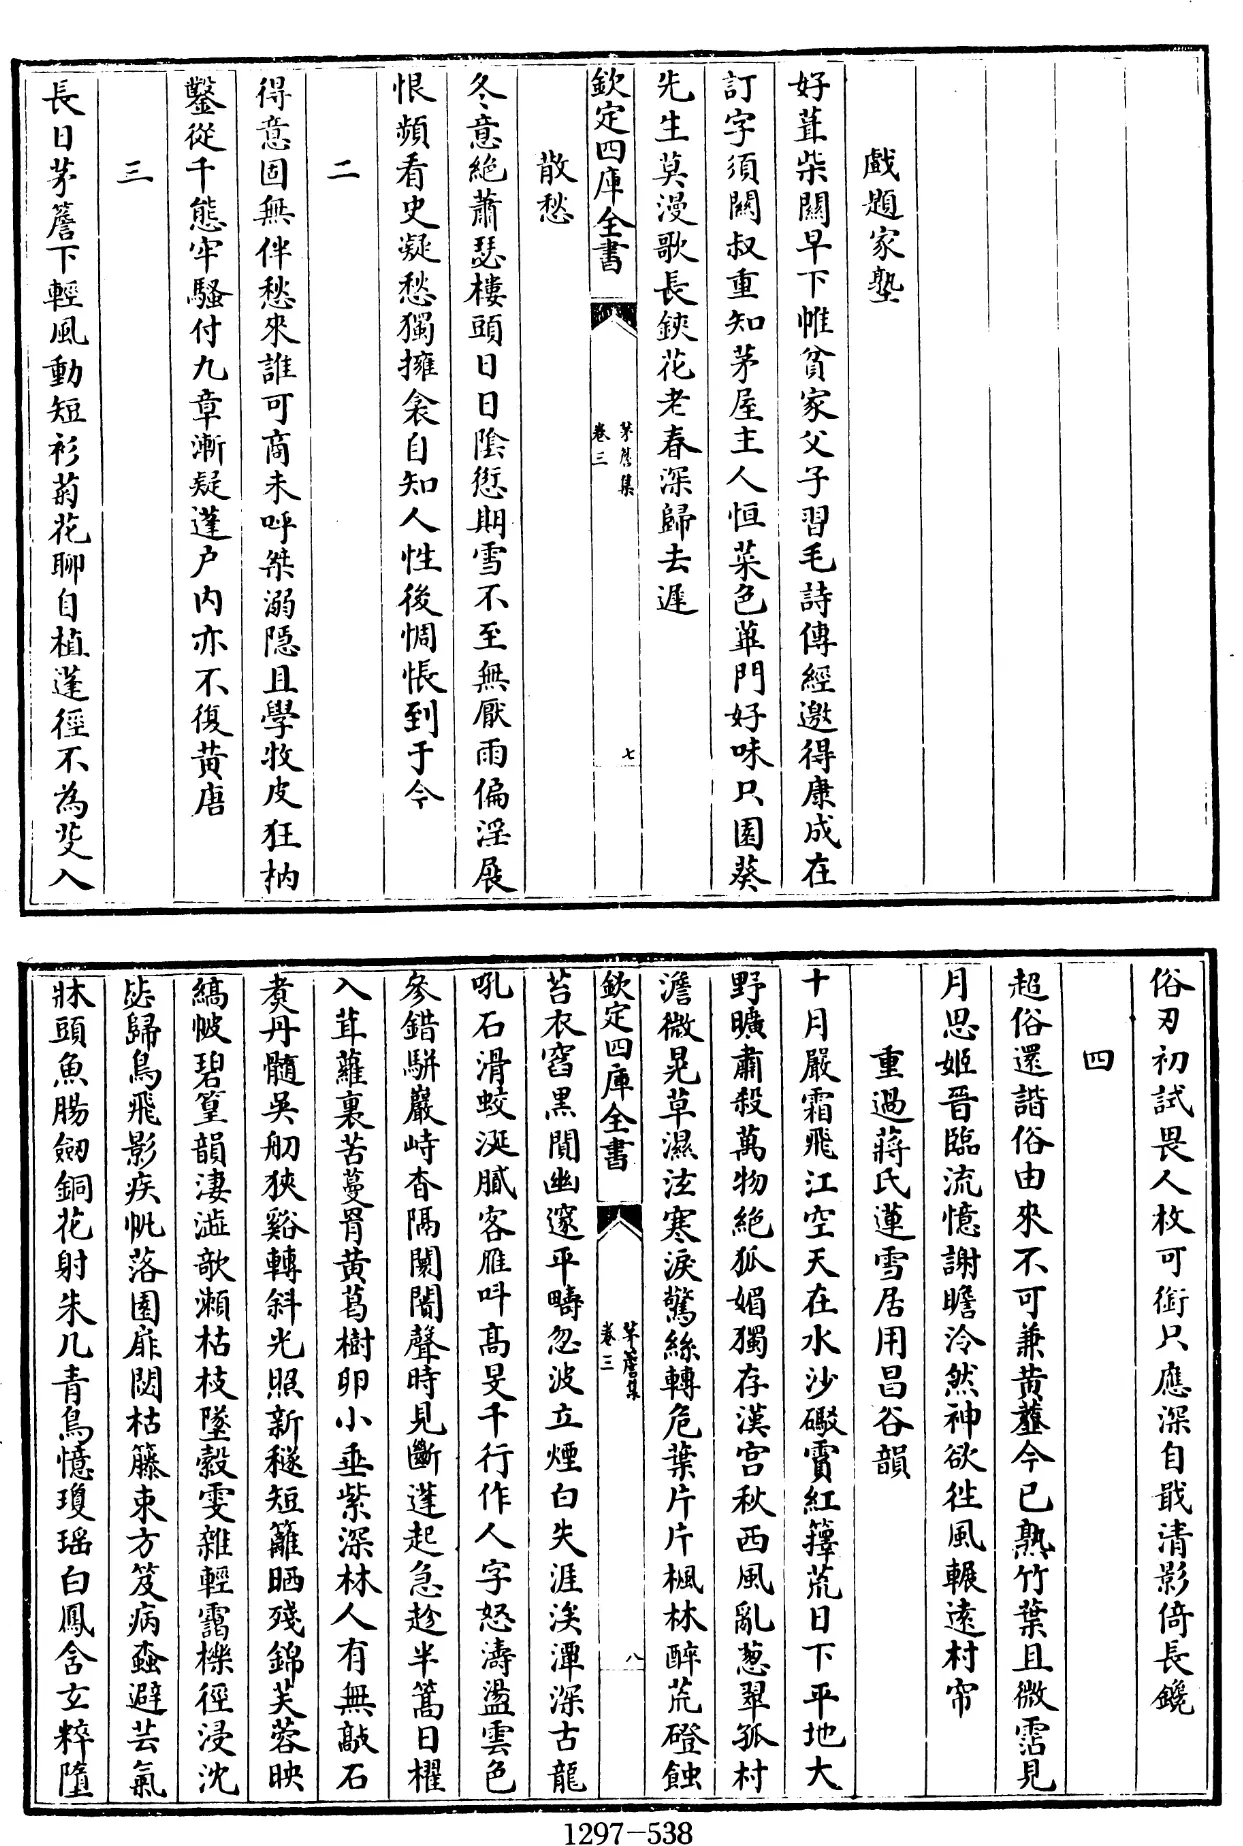 戲題家塾
好葺柴關早下帷貧家父子習毛詩傳經邀得康成在
訂字須關叔重知茅屋主人恒菜色蓽門好味只園葵
先生莫漫歌長鋏花老春深歸去遲
欽定四庫全書
茅簷集
卷三
七
散愁
冬意絶蕭瑟樓頭日日陰愆期雪不至無厭雨偏淫展
恨頻看史凝愁獨擁衾自知人性後惆悵到于今
二
得意固無伴愁來誰可商未呼桀溺隠且學牧皮狂枘
鑿從千態牢騷付九章漸疑蓬户内亦不復黄唐
三
長日茅簷下輕風動短衫菊花聊自植蓬徑不為芟入
俗刃初試畏人枚可銜只應深自戢清影倚長鑱
四
超俗還諧俗由來不可兼黄虀今已熟竹葉且微霑見
月思姬晉臨流憶謝瞻泠然神欲徃風輾逺村帘
重過蔣氏蓮雪居用昌谷韻
十月嚴霜飛江空天在水沙礟賈紅籜荒日下平地大
野曠肅殺萬物絶狐媚獨存漢宫秋西風亂葱翠孤村
澹微晃草濕泫寒淚驚絲轉危葉片片楓林醉荒磴蝕
欽定四庫全書
茅簷集
卷三
八
苔衣窞黒閴幽邃平疇忽波立煙白失涯涘潭深古龍
吼石滑蛟涎膩客雁叫髙旻千行作人字怒濤盪雲色
參錯駢巖峙杳隔闤闠聲時見斷蓬起急趁半篙日櫂
入茸蘿裏苦蔓罥黄葛樹卵小垂紫深林人有無敲石
煑丹髓吳舠狹谿轉斜光照新穟短籬晒殘錦芙蓉映
縞帔碧篁韻淒澁欹瀨枯枝墜縠雯雜輕靄檪徑浸沈
毖歸鳥飛影疾帆落園扉閟枯籐束方笈病蟲避芸氣
牀頭魚腸劒銅花射朱几青鳥憶瓊瑶白鳳含玄粹墮
1297-538